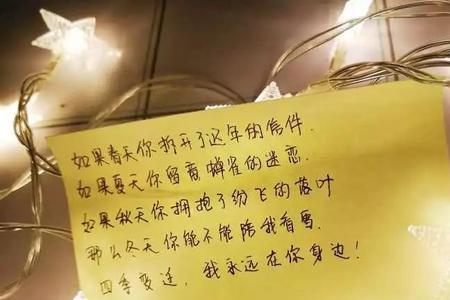 如果春天你拆开了这年的信件.
如果夏天你留意蝉雀的迷恋.
如果秋天你拥抱了纷飞的落叶
那么冬天你能不能陪我看雪.
四季变迁，我永远在你身边！